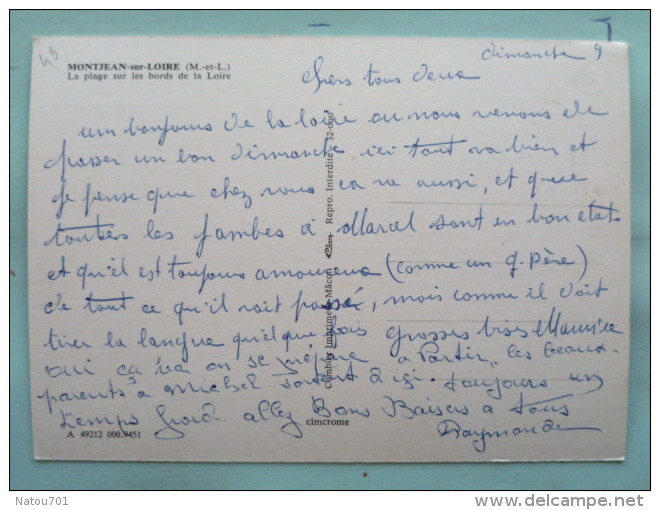 49
MONTJEAN-sur-LOIRE (M.-et-L.)
La plage sur les bords de la Loire
dimanche 9
Chers tous deux
un bonjour de la loire ou nous venons de
passer un bon dimanche ici tout va bien et
je pense que chez vous ca va aussi, et que
toutes les jambes à Marcel sont en bon etats
et qu'il est toujours amoureux (comme un g. Père)
de tout ce qu'il voit passé, mais comme il doit
tirer la langue quelque fois grosses bises Maurice
oui ça va on se prépare a Partir, les beaux-
parents à Michel sont ici. toujours un
temps froid. allez Bons Baisers a tous
Raymonde
Combier Imprimeur Mâcon Cim Repro. Interdite 12-000
cimcrome
A 49212 000.9451
Natou701
www.delcampe.net